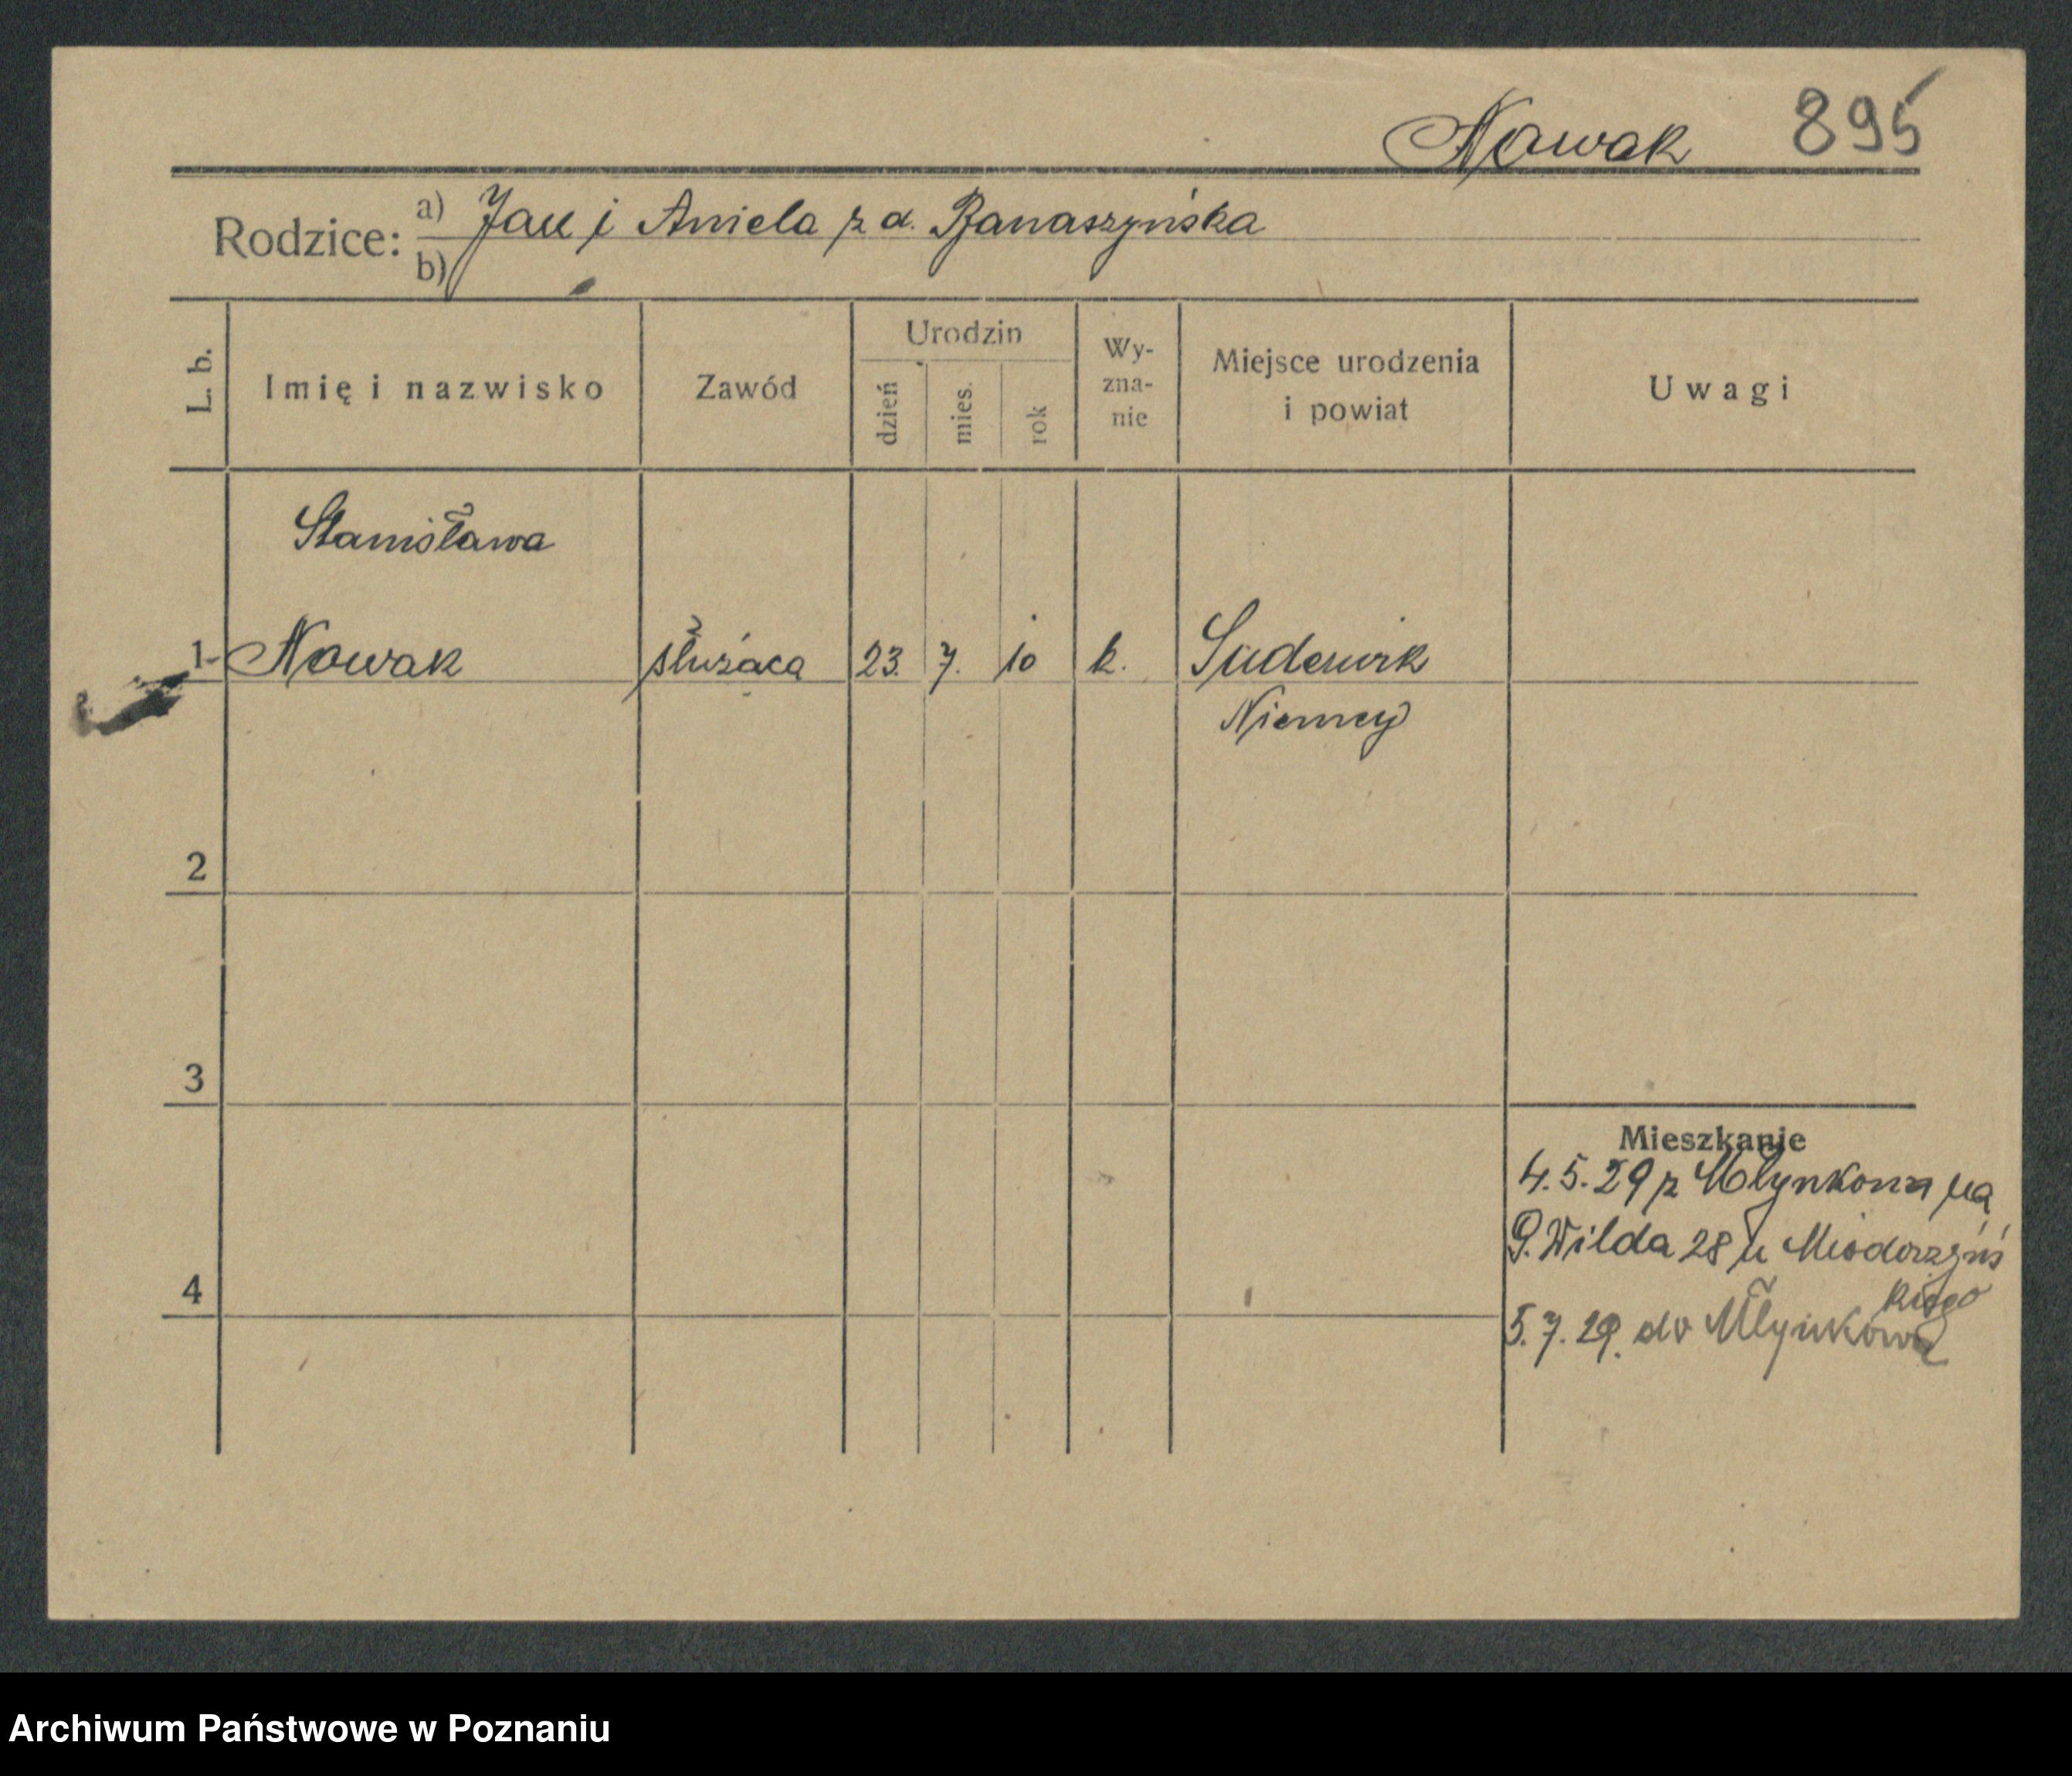 Nowak 895
Rodzice: a) Jan i Aniela z d. Banaszyńska
b)
L. b. Imię i nazwisko Zawód Urodzin dzień mies. rok Wy-zna-nie Miejsce urodzenia i powiat Uwagi
Stanisława
1 Nowak służąca 23. 7. 10 k. Suderwik
Niemcy
2
3
Mieszkanie
4.5.29 z Młynkowa na
G. Wilda 28 u
4
5.7.29. do Młynkowa
Archiwum Państwowe w Poznaniu